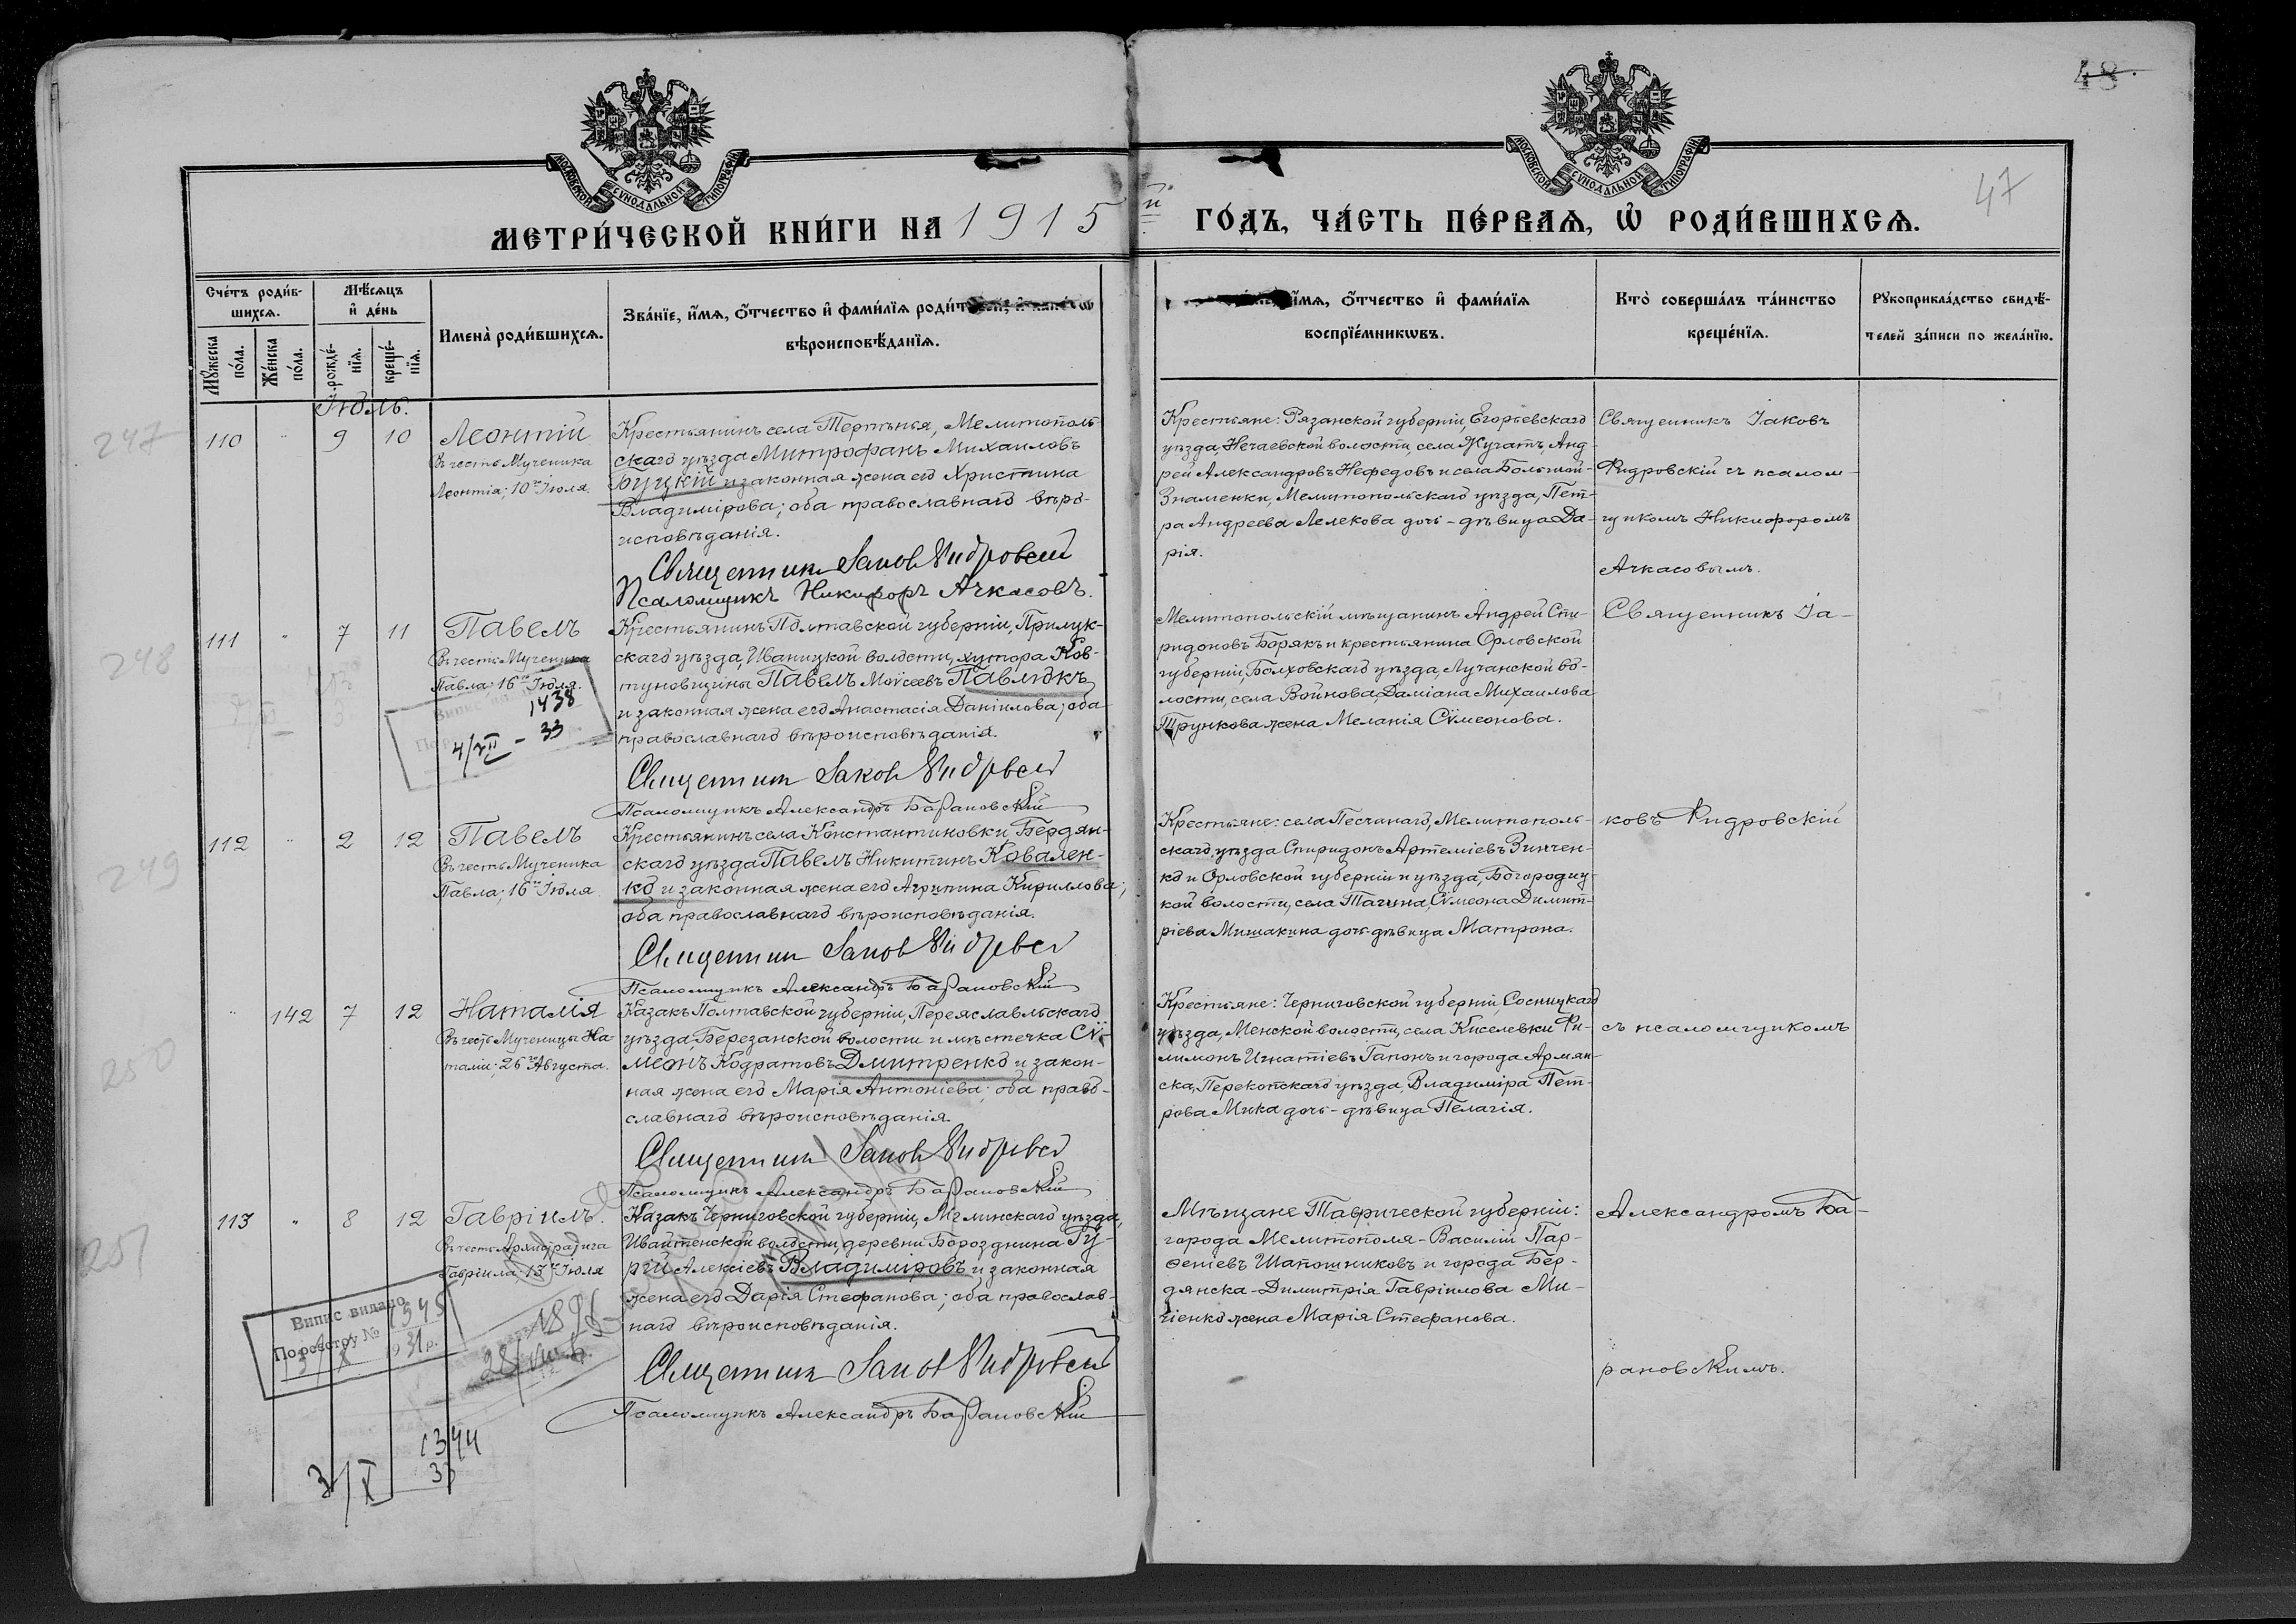 48
47
МОСКОВСКОЙ СУНОДАЛЬНОЙ ТИПОГРАФІИ
МОСКОВСКОЙ СУНОДАЛЬНОЙ ТИПОГРАФІИ
МЕТРИ́ЧЕСКОЙ КНИ́ГИ НА 1915й ГО́ДЪ, ЧА́СТЬ ПЕ́РВАѦ, Ѡ҆ РОДИ́ВШИХСѦ.
Сче́тъ роди́в-
шихсѧ.
Мꙋ́жеска
по́ла.
Же́нска
по́ла.
Мѣ́сѧцъ
и҆ де́нь
рожде́-
нїѧ.
креще́-
нїѧ.
Имена̀ роди́вшихсѧ.
Зва́нїе, и҆́мѧ, ѻ҆́тчество и҆ фами́лїѧ
вѣроисповѣ́данїѧ.
и҆́мѧ, ѻ҆́тчество и҆ фами́лїѧ
воспрїе́мникѡвъ.
Кто̀ соверша́лъ та́инство
креще́нїѧ.
Рꙋкоприкла́дство свидѣ́-
телей за́писи по жела́нїю.
Іюль.
247
110 " 9 10
Леонтій
Въ честь Мученика
Леонтія; 10го Іюля.
Крестьянинъ села Терпѣнья, Мелитополь-
скаго уѣзда Митрофанъ Михаиловъ
Буцкій и законная жена его Христина
Владимірова; оба православнаго вѣро-
исповѣданія.
Священникъ Іаковъ Ѳидровскій
Псаломщикъ Никифоръ Ачкасовъ.
Крестьяне: Рязанской губерніи, Егорьевскаго
уѣзда, Нечаевской волости, села Жучатъ, Анд-
рей Александровъ Нефедовъ и села Большой-
Знаменки, Мелитопольскаго уѣзда, Пет-
ра Андреева Лелекова дочь-дѣвица Да-
рія.
Священникъ Іаковъ
Ѳидровскій съ псалом-
щикомъ Никифоромъ
Ачкасовымъ.
248
111 " 7 11
Павелъ
Въ честь Мученика
Павла; 16го Іюля.
1438
4/VII - 33
Крестьянинъ Полтавской губерніи, Прилук-
скаго уѣзда, Иваницкой волости, хутора Ков-
туновщины Павелъ Моисеевъ Павлюкъ
и законная жена его Анастасія Даніилова; оба
православнаго вѣроисповѣданія.
Священникъ Іаковъ Ѳидровскій
Псаломщикъ Александръ Барановскій
Мелитопольскій мѣщанинъ Андрей Спи-
ридоновъ Борякъ и крестьянина Орловской
губерніи, Болховскаго уѣзда, Лучанской во-
лости, села Войнова, Даміана Михаилова
Трункова жена Меланія Сѵмеонова.
Священникъ Іа-
249
112 " 2 12
Павелъ
Въ честь Мученика
Павла; 16го Іюля
Крестьянинъ села Константиновки Бердян-
скаго уѣзда Павелъ Никитинъ Ковален-
ко и законная жена его Агрипина Кириллова;
оба православнаго вѣроисповѣданія.
Священникъ Іаковъ Ѳидровскій
Псаломщикъ Александръ Барановскій
Крестьяне: села Песчанаго, Мелитополь-
скаго уѣзда Спиридонъ Артеміевъ Зинчен-
ко и Орловской губерніи и уѣзда, Богородиц-
кой волости, села Тагина, Сѵмеона Димит-
ріева Мишакина дочь-дѣвица Матрона.
ковъ Ѳидровскій
250
" 142 7 12
Наталія
Въ честь Мученицы На-
таліи; 26го Августа.
Казакъ Полтавской губерніи, Переяславльскаго
уѣзда, Березанской волости и мѣстечка Сѵ-
меонъ Кодратовъ Дмитренко и закон-
ная жена его Марія Антоніева; оба право-
славнаго вѣроисповѣданія.
Священникъ Іаковъ Ѳидровскій
Псаломщикъ Александръ Барановскій
Крестьяне: Черниговской губерніи, Сосницкаго
уѣзда, Менской волости, села Киселевки Фи-
лимонъ Игнатіевъ Гапонъ и города Армян-
ска, Перекопскаго уѣзда, Владиміра Пет-
рова Мика дочь-дѣвица Пелагія.
съ псаломщикомъ
251
113 " 8 12
Гавріилъ.
Въ честь Архистратига
Гавріила; 13го Іюля
Казакъ Черниговской губерніи, Мглинскаго уѣзда,
Ивайтенской волости, деревни Бороздина Гу-
рій Алексіевъ Владиміровъ и законная
жена его Дарія Стефанова; оба православ-
наго вѣроисповѣданія.
Священникъ Іаковъ Ѳидровскій
Псаломщикъ Александръ Барановскій
Мѣщане Таврической губерніи:
города Мелитополя-Василій Пар-
ѳеніевъ Шапошниковъ и города Бер-
дянска-Димитрія Гавріилова Ми-
хіенко жена Марія Стефанова.
Александромъ Ба-
рановскимъ.
Випис видано
По реєстру № 1345
3/X 1931 р.
1344
33
3/X